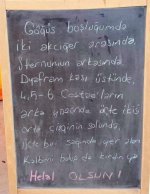 Göğüs boşluğumda
iki akciğer arasında,
sternumun arkasında
Diyafram kası üstünde,
4,5-6 Costaların
arka yüzünde üçte ikisi
orta çizginin solunda,
üçte biri sağında yer alan
Kalbimi baba da kıran ya
Helal OLSUN!